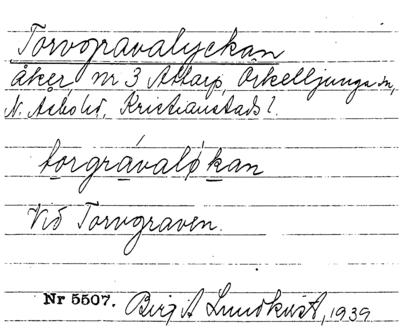 Torvgravalyckan
åker, nr 3 Attarp, Örkelljunga sn,
N. Åsbo hd, Kristianstads l.
torgrávaløkan
Vid Torvgraven.
Nr 5507. Birgit Lundkvist, 1939